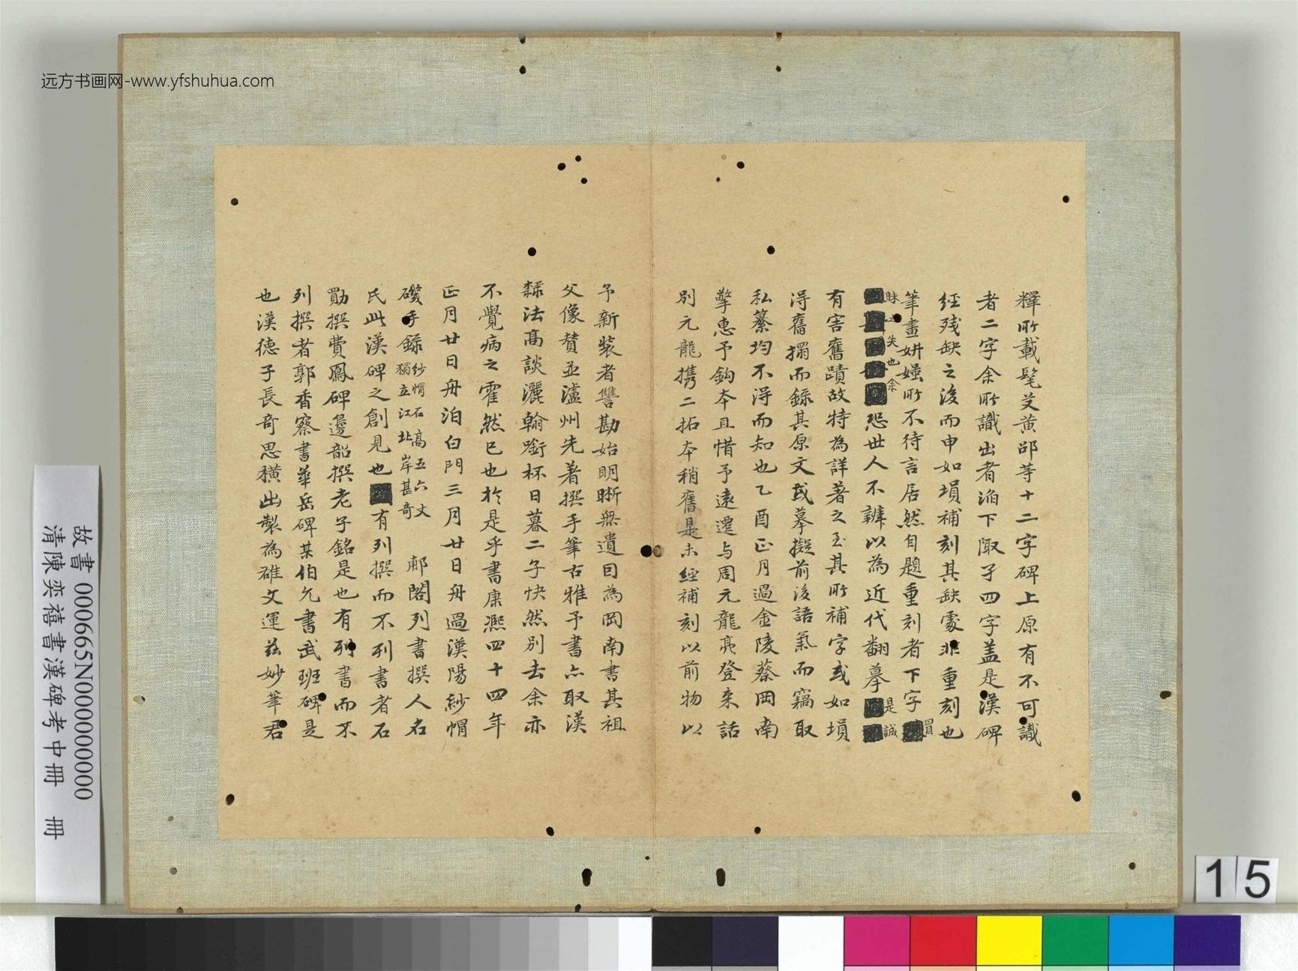 远方书画网-www.yfshuhua.com
釋所載髦艾黃邵等十二字碑上原有不可識
者二字余所識出者滔下陬子四字蓋是漢碑
經殘缺之後而申如塤補刻其缺處非重刻也
筆畫妍媸所不待言居然自題重刻者下字
冒
昧之失也余
恐世人不辨以為近代翻摹
是誠
有害舊蹟故特為詳著之至其所補字或如塤
得舊搨而錄其原文或摹擬前後語氣而竊取
私纂均不得而知也乙酉正月過金陵蔡岡南
擎惠予鈎本且惜予遠遷与周元龍亮登來話
別元龍攜二拓本稍舊是未經補刻以前物以
予新裝者讐勘始明晰無遺因為岡南書其祖
父像贊並瀘州先著撰手筆古雅予書亦取漢
隸法高談灑翰銜杯日暮二子快然別去余亦
不覺病之霍然已也於是乎書康熙四十四年
正月廿日舟泊白門三月廿日舟過漢陽紗帽
磯手錄
紗帽石高五六丈
獨立江北岸甚奇
郙閣列書撰人名
氏此漢碑之創見也
有列撰而不列書者石
勛撰費鳳碑邊韶撰老子銘是也有列書而不
列撰者郭香察書華岳碑某伯允書武班碑是
也漢德子長奇思橫出製為雄文運茲妙筆君
故書 000665N000000000
清陳奕禧書漢碑考中冊 冊
15